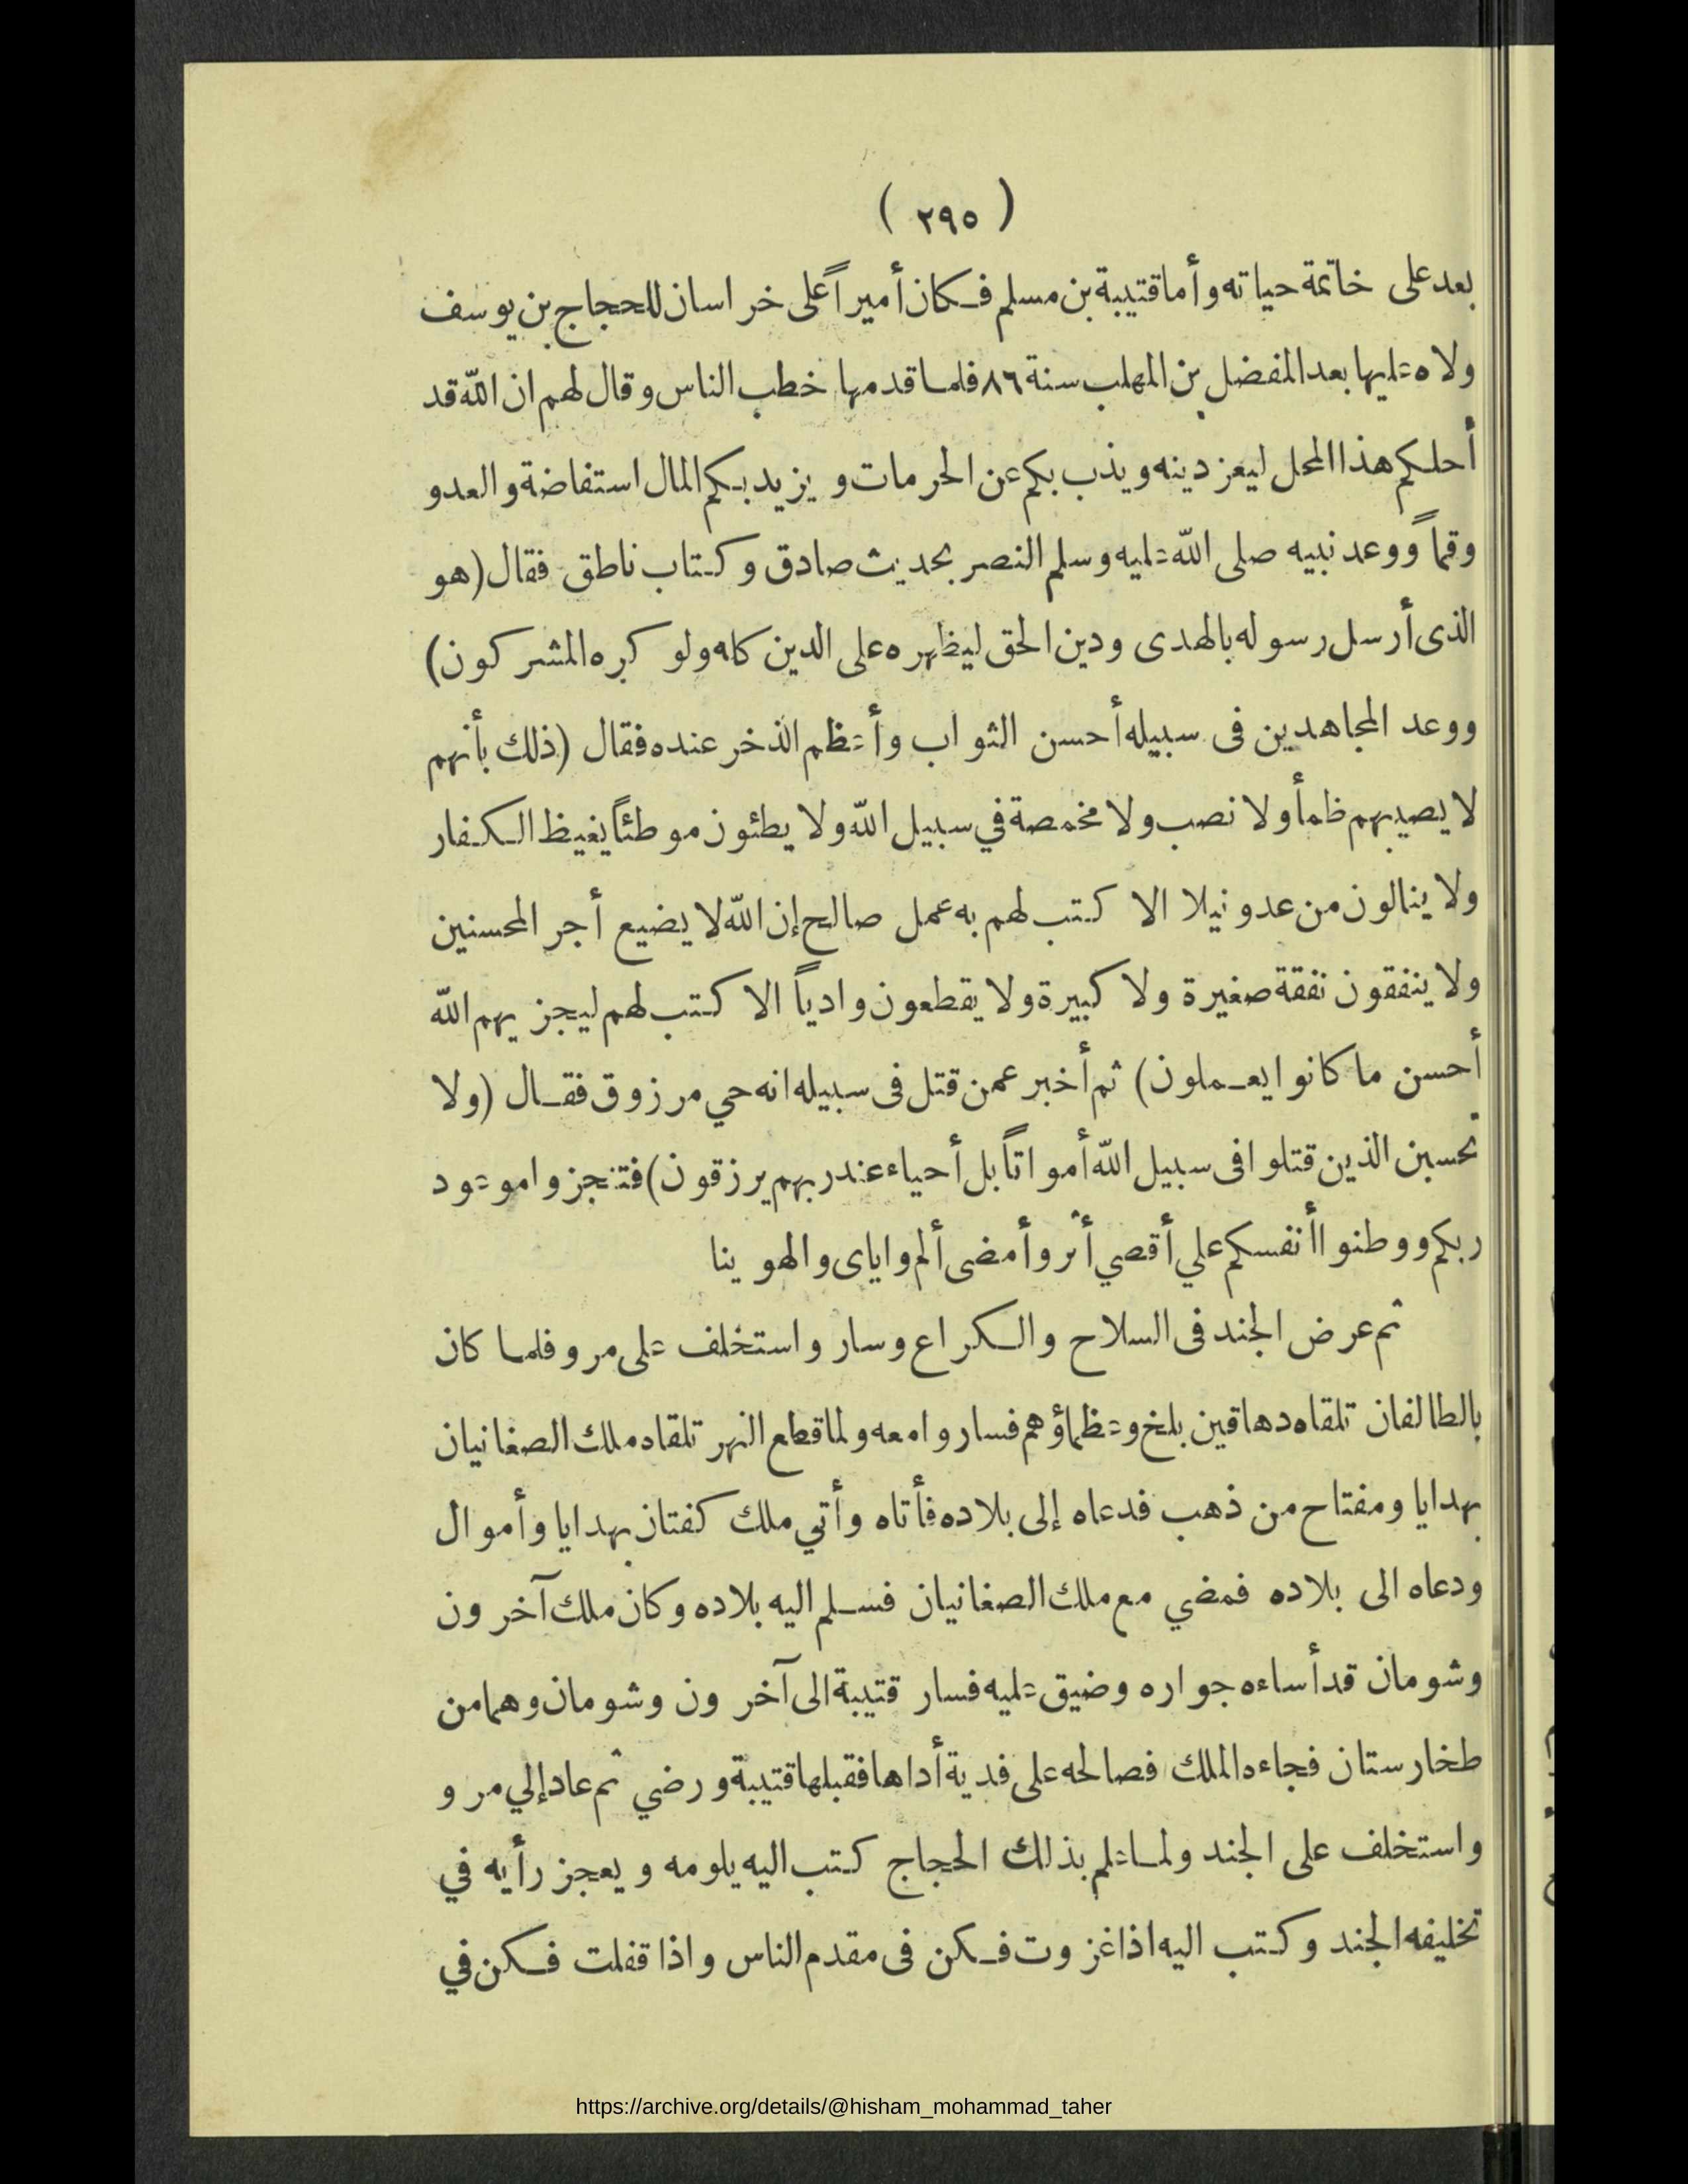 ( ٢٩٥ )
بعد على خاتمة حياته وأما قتيبة بن مسلم فكان أميراً على خراسان للحجاج بن يوسف
ولاه عليها بعد المفضل بن المهلب سنة ٨٦ فلما قدمها خطب الناس وقال لهم ان الله قد
أحلكم هذا المحل ليعز دينه ويذب بكم عن الحرمات ويزيد بكم المال استفاضة والعدو
وقماً ووعد نبيه صلى الله عليه وسلم النصر بحديث صادق وكتاب ناطق فقال (هو
الذى أرسل رسوله بالهدى ودين الحق ليظهره على الدين كله ولو كره المشركون)
ووعد المجاهدين فى سبيله أحسن الثواب وأعظم الذخر عنده فقال (ذلك بأنهم
لا يصيبهم ظمأ ولا نصب ولا مخمصة في سبيل الله ولا يطئون موطئاً يغيظ الكفار
ولا ينالون من عدو نيلا الا كتب لهم به عمل صالح إن الله لا يضيع أجر المحسنين
ولا ينفقون نفقة صغيرة ولا كبيرة ولا يقطعون وادياً الا كتب لهم ليجزيهم الله
أحسن ما كانوا يعملون) ثم أخبر عمن قتل فى سبيله انه حي مرزوق فقال (ولا
تحسبن الذين قتلوا فى سبيل الله أمواتاً بل أحياء عند ربهم يرزقون) فتنجزوا موعود
ربكم ووطنوا أنفسكم علي أقصي أثر وأمضى ألم واياى والهوينا
ثم عرض الجند فى السلاح والكراع وسار واستخلف على مرو فلما كان
بالطالفان تلقاه دهاقين بلخ وعظماؤهم فساروا معه ولما قطع النهر تلقاه ملك الصغانيان
بهدايا ومفتاح من ذهب فدعاه إلى بلاده فأتاه وأتي ملك كفتان بهدايا وأموال
ودعاه الى بلاده فمضي مع ملك الصغانيان فسلم اليه بلاده وكان ملك آخرون
وشومان قد أساءه جواره وضيق عليه فسار قتيبة الى آخرون وشومان وهما من
طخارستان فجاءه الملك فصالحه على فدية أداها فقبلها قتيبة ورضي ثم عاد إلي مرو
واستخلف على الجند ولما علم بذلك الحجاج كتب اليه يلومه ويعجز رأيه في
تخليفه الجند وكتب اليه اذا غزوت فكن فى مقدم الناس واذا قفلت فكن في
https://archive.org/details/@hisham_mohammad_taher